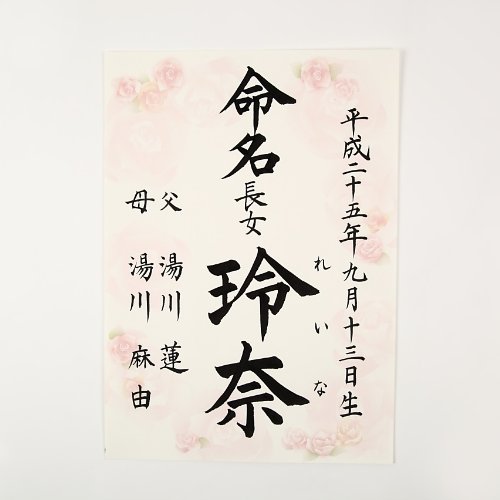 平成二十五年九月十三日生
命名長女
玲奈
れいな
父 湯川 蓮
母 湯川 麻由